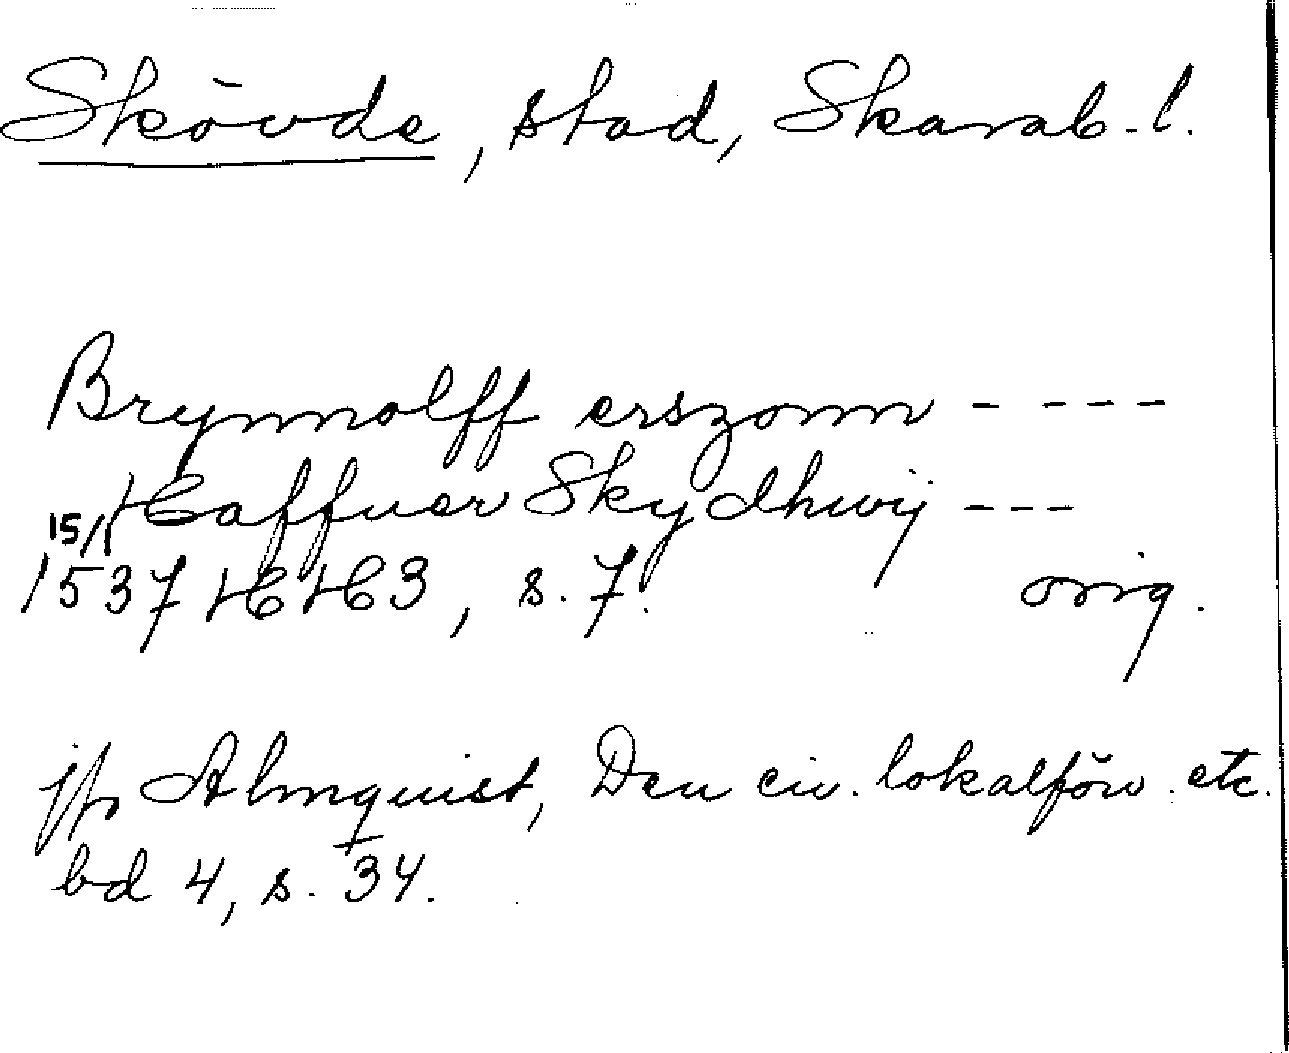 Skövde, stad, Skarab. l.
Brynnolff erszonn - - - - -
Haffuer Skydhwij - - -
15/1
1537 HH3, s. 7. orig.
jfr Almquist, Den civ. lokalförv. etc.
bd 4, s. 34.